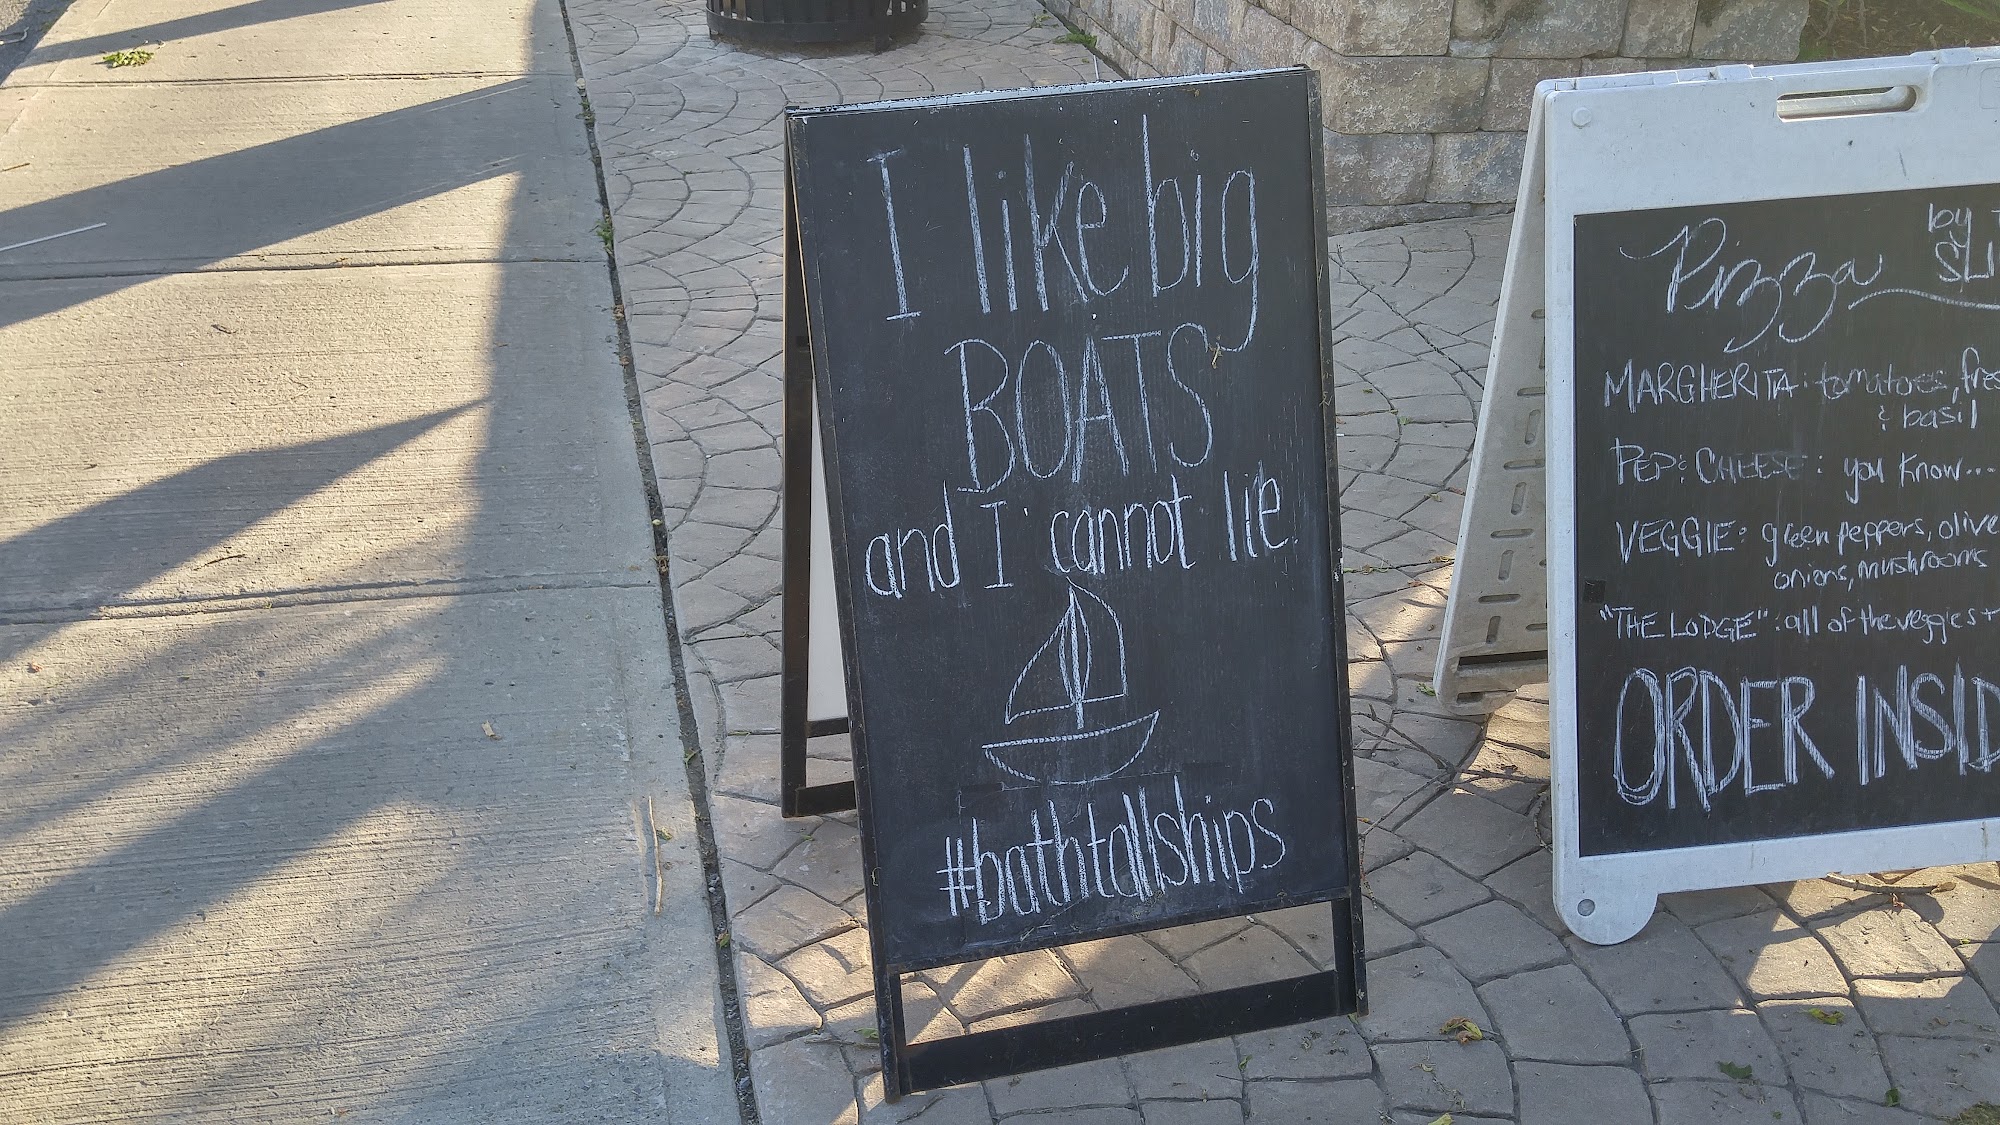 I like big
BOATS
and I cannot lie.
#bathtallships
Pizza by
MARGHERITA: tomatoes,
& basil
PEP & CHEESE: you know...
VEGGIE: green peppers, olive
onions, mushrooms
"THE LODGE": all of the veggies +
ORDER INSID